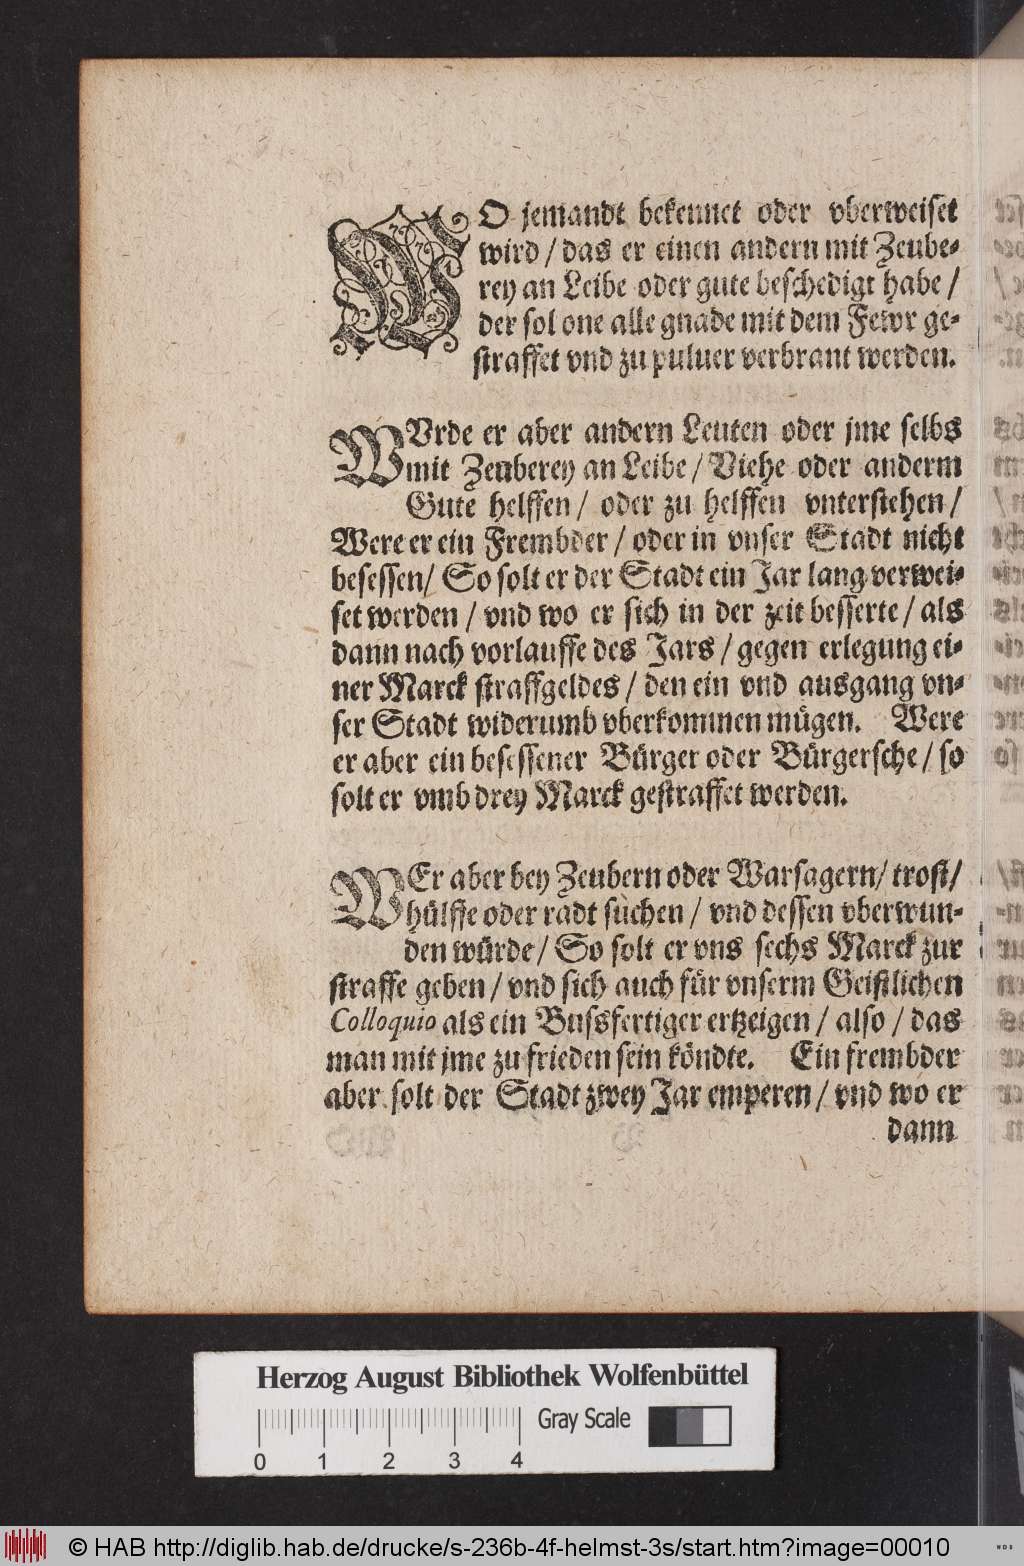 WO jemandt bekennet oder vberweiset
wird / das er einen andern mit Zeube-
rey an Leibe oder gute beschedigt habe /
der sol one alle gnade mit dem Fewr ge-
straffet vnd zu puluer verbrant werden.
WVrde er aber andern Leuten oder jme selbs
mit Zeuberey an Leibe / Viehe oder anderm
Gute helffen / oder zu helffen vnterstehen /
Were er ein Frembder / oder in vnser Stadt nicht
besessen / So solt er der Stadt ein Jar lang verwei-
set werden / vnd wo er sich in der zeit besserte / als
dann nach vorlauffe des Jars / gegen erlegung ei-
ner Marck straffgeldes / den ein vnd ausgang vn-
ser Stadt widerumb vberkommen mügen. Were
er aber ein besessener Bürger oder Bürgersche / so
solt er vmb drey Marck gestraffet werden.
WEr aber bey Zeubern oder Warsagern / trost /
hülffe oder radt süchen / vnd dessen vberwun-
den würde / So solt er vns sechs Marck zur
straffe geben / vnd sich auch für vnserm Geistlichen
Colloquio als ein Bussfertiger ertzeigen / also / das
man mit jme zu frieden sein köndte. Ein frembder
aber solt der Stadt zwey Jar emperen / vnd wo er
dann
Herzog August Bibliothek Wolfenbüttel
Gray Scale
0 1 2 3 4
© HAB http://diglib.hab.de/drucke/s-236b-4f-helmst-3s/start.htm?image=00010